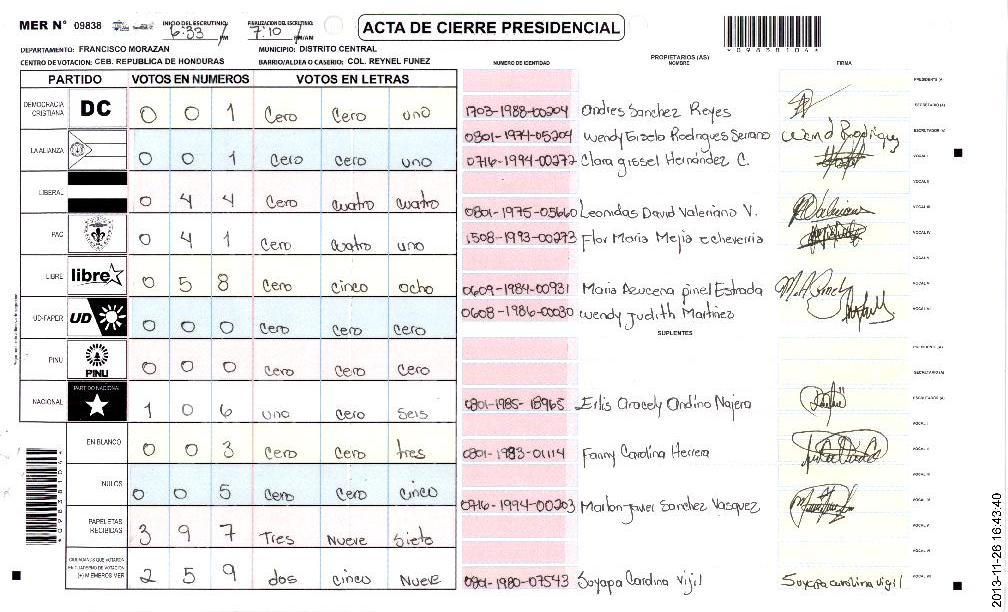 MER N° 09838 INICIO DEL ESCRUTINIO 6:33 PM FINALIZACION DEL ESCRUTINIO 7:10 PM/AM
ACTA DE CIERRE PRESIDENCIAL
*09838104*
DEPARTAMENTO: FRANCISCO MORAZAN MUNICIPIO: DISTRITO CENTRAL
CENTRO DE VOTACION: CEB. REPUBLICA DE HONDURAS BARRIO/ALDEA O CASERIO: COL. REYNEL FUNEZ
PARTIDO VOTOS EN NUMEROS VOTOS EN LETRAS
DEMOCRACIA CRISTIANA DC 0 0 1 Cero Cero uno
LA ALIANZA 0 0 1 Cero cero uno
LIBERAL 0 4 4 Cero cuatro cuatro
PAC 0 4 1 Cero cuatro uno
LIBRE libre 0 5 8 Cero cinco ocho
UD-FAPER UD 0 0 0 Cero Cero Cero
PINU PINU 0 0 0 Cero Cero Cero
NACIONAL PARTIDO NACIONAL 1 0 6 uno Cero Seis
EN BLANCO 0 0 3 Cero Cero tres
NULOS 0 0 5 Cero Cero cinco
PAPELETAS RECIBIDAS 3 9 7 Tres Nueve Siete
CIUDADANOS QUE VOTARON EN CUADERNO DE VOTACION (+) MIEMBROS MER 2 5 9 dos cinco Nueve
PROPIETARIOS (AS)
NUMERO DE IDENTIDAD NOMBRE FIRMA
PRESIDENTE (A)
1703-1988-00204 Andres Sanchez Reyes SECRETARIO (A)
0801-1974-05204 Wendy Gisela Rodrigues Serrano Wend Rodriguez ESCRUTADOR (A)
0716-1994-00272 Clara gissel Hernández C. VOCAL I
VOCAL II
0801-1975-05660 Leonidas David Valeriano V. VOCAL III
1508-1993-00273 Flor Maria Mejia echeverria VOCAL IV
VOCAL V
0609-1984-00931 Maria Azucena pinel Estrada VOCAL VI
0608-1986-00030 Wendy Judith Martinez VOCAL VII
SUPLENTES
PRESIDENTE (A)
SECRETARIO (A)
0801-1985-18965 Erlis Aracely Andino Najera ESCRUTADOR (A)
VOCAL I
0801-1983-01114 Fanny Carolina Herrera VOCAL II
VOCAL III
0716-1994-00203 Marlon javier Sanchez Vasquez VOCAL IV
VOCAL V
VOCAL VI
0801-1980-07543 Suyapa Carolina Vijil Suyapa carolina vigil VOCAL VII
*09838104*
2013-11-26 16:43:40